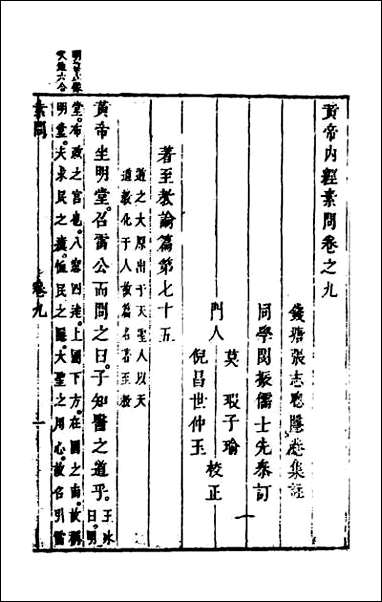 黃帝内經素問卷之九
錢塘張志聰隱菴集註
同學閔振儒士先參訂
門人
莫瑕子瑜
倪昌世仲玉
校正
著至教論篇第七十五
道之大原出于天聖人以天
道教化于人故篇名著至教
黃帝坐明堂召雷公而問之曰子知醫之道乎。王冰
曰。明
堂。布政之宮也。八窓四達。上圓下方。在國之南。故稱
明堂。夫求民之瘼。恤民之隱。大聖之用心。故召引雷
素問
卷九
一